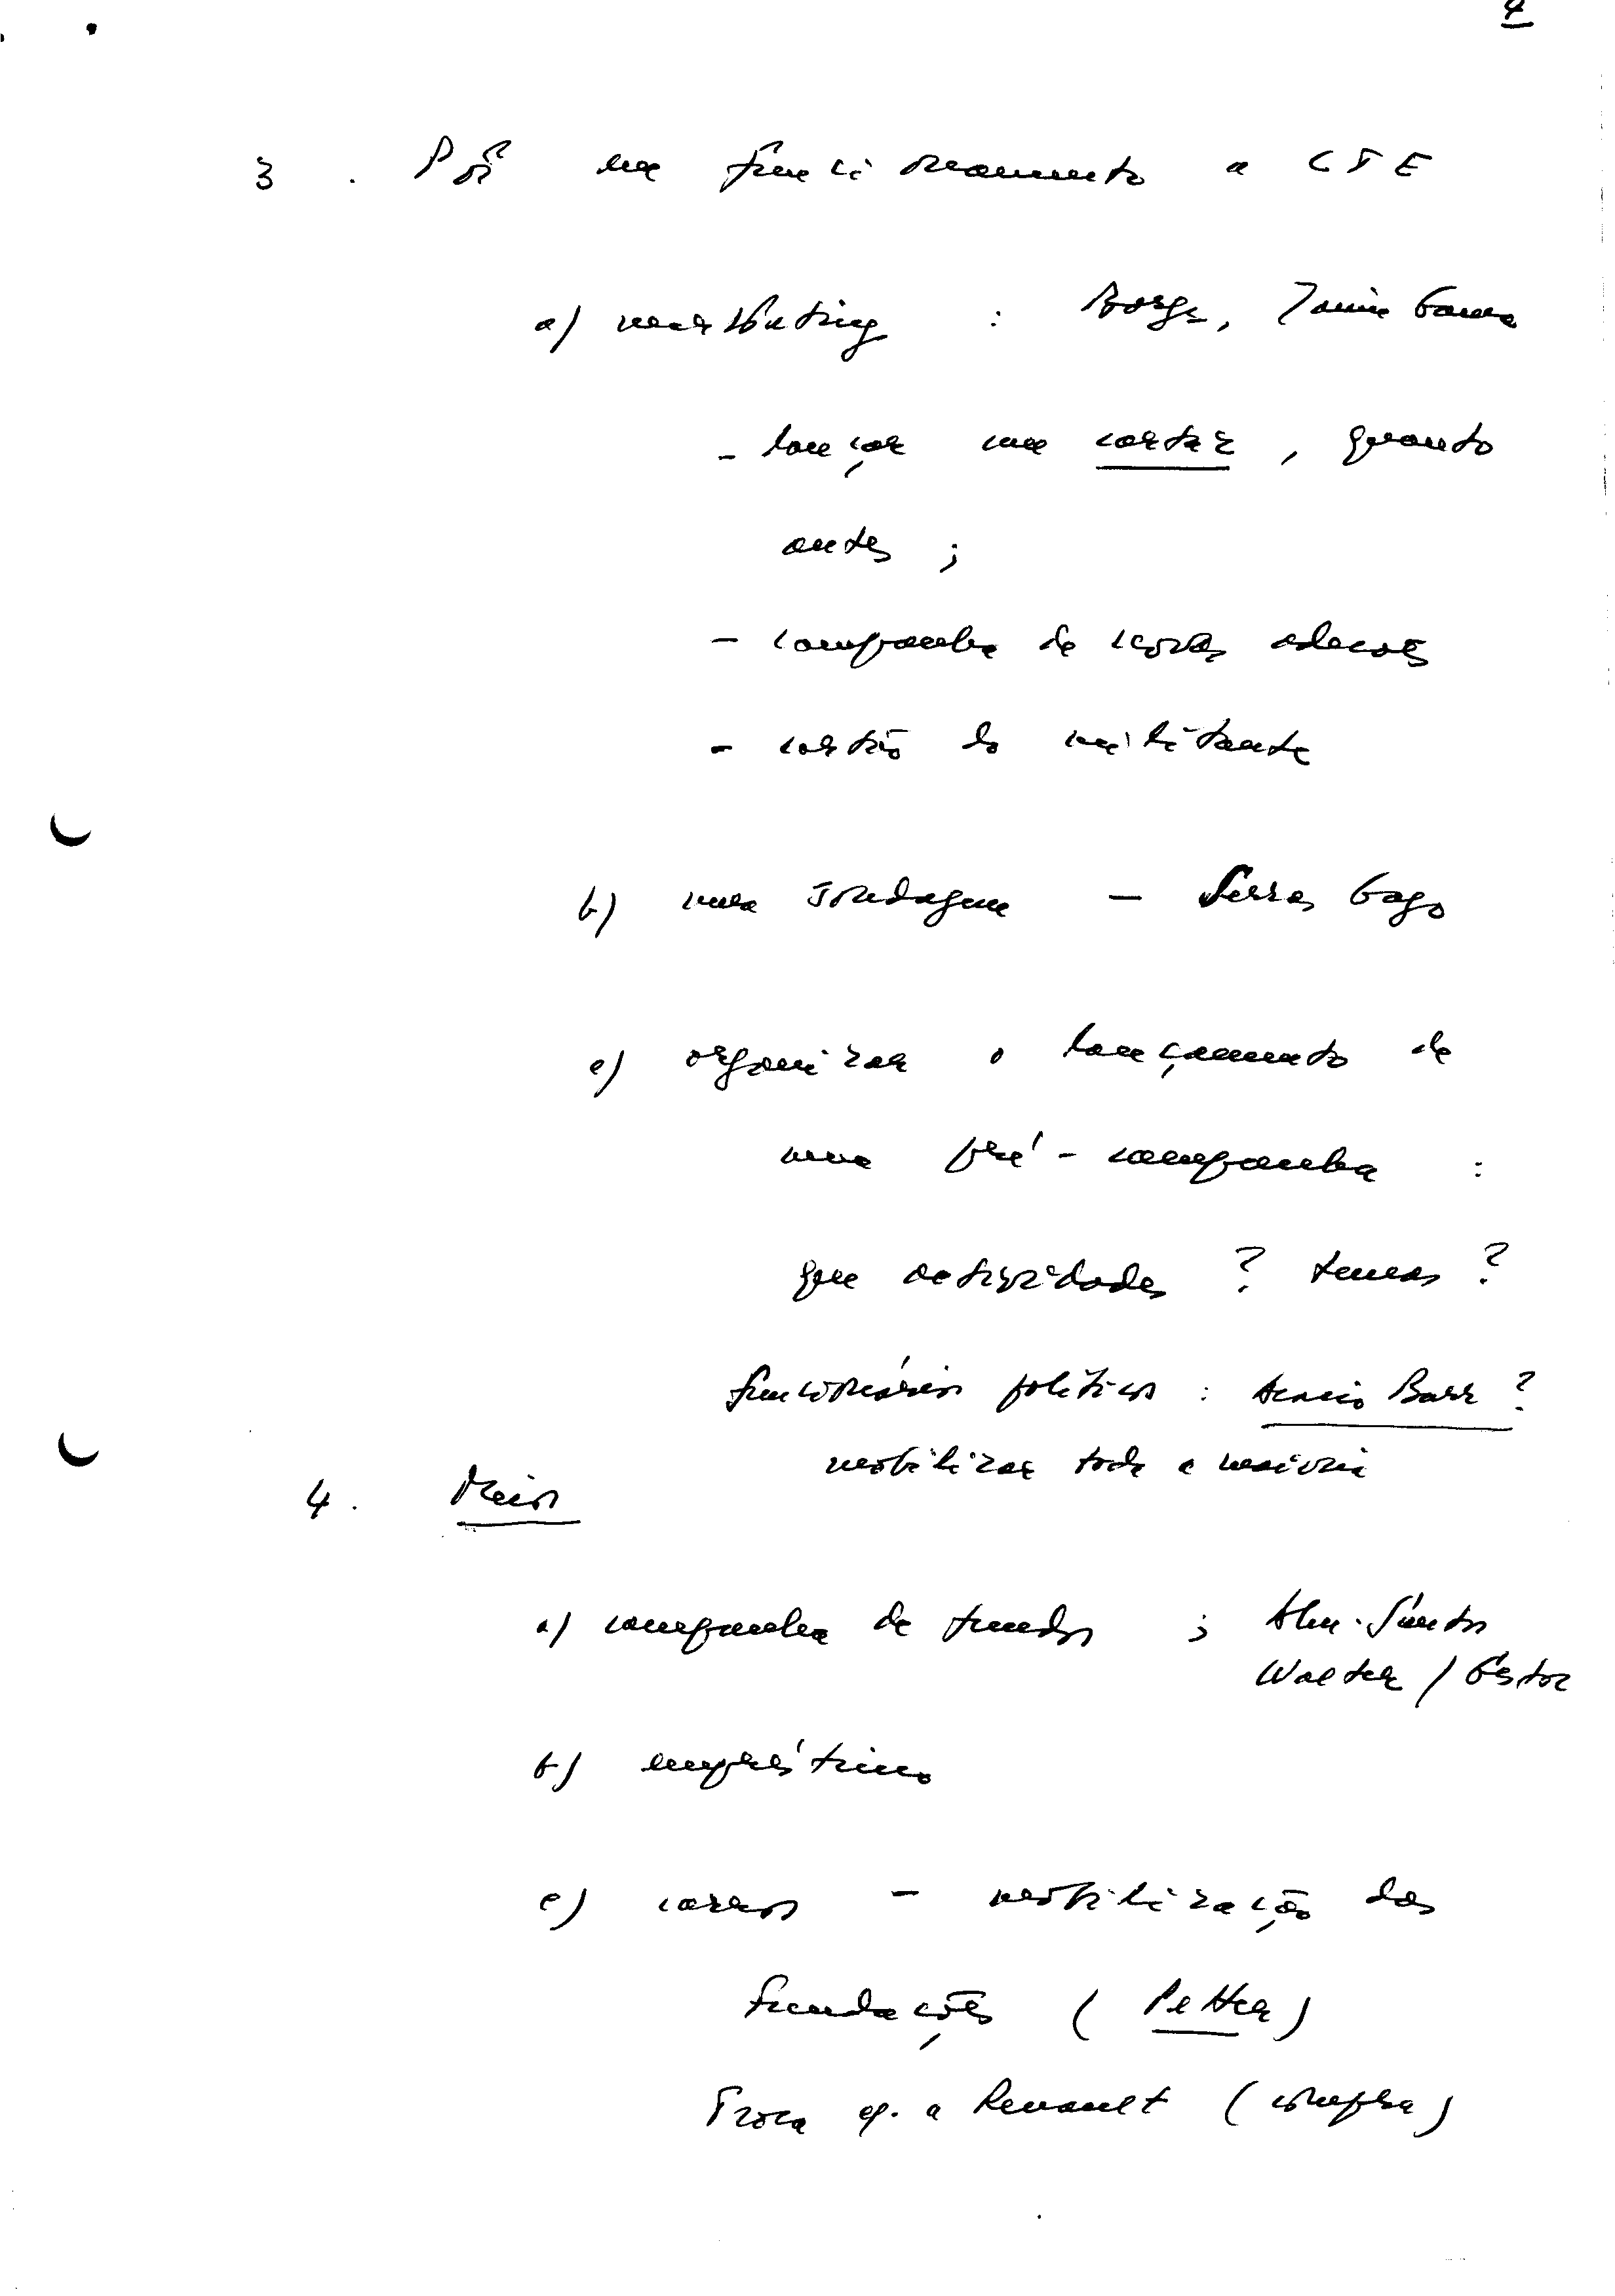 4
3. Pôr em funcionamento a CTE
a) marketing : Borges, Jaime Gama
- lançar um cartaz, quanto
antes ;
- campanha de novas adesões
- cartão do militante
b) uma sondagem - Serras Gago
c) organizar o lançamento de
uma pré-campanha :
que actividades ? temas ?
funcionários políticos : Acacio Barr ?
mobilizar toda a
4. Meios
a) campanha de fundos ; Alm. Santos
Walter / Gestor
b) empréstimo
c) carros - mobilização das
fundações ( Petter )
Troca c/. a Renault ( compra )